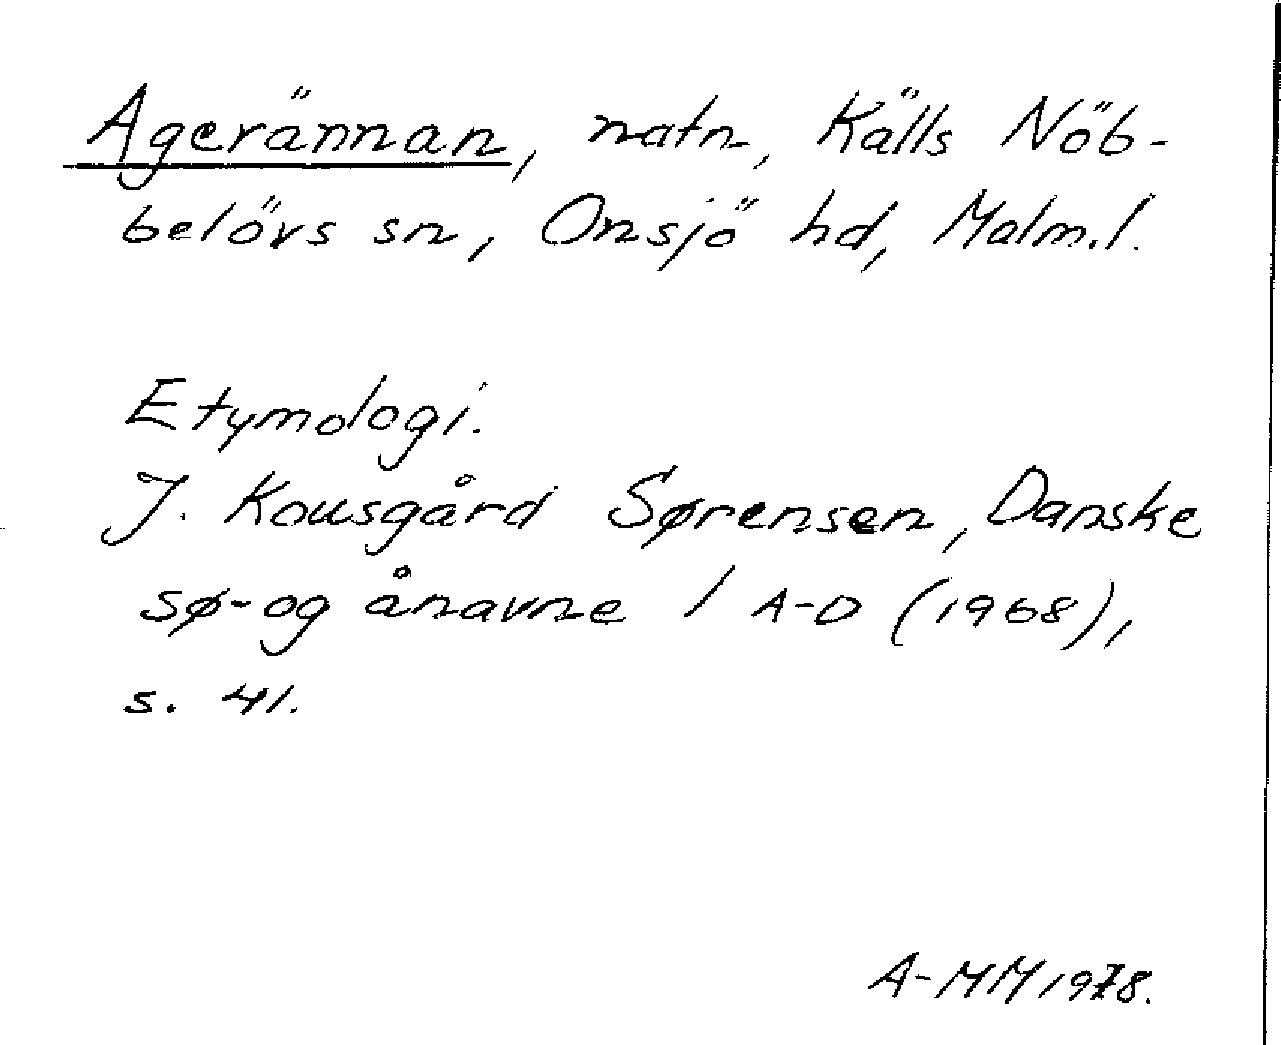 Agerännan, natn, Källs Nöb-
belövs sn, Onsjö hd, Malm.l.
Etymologi.
J. Kousgård Sørensen, Danske
sø-og ånavne 1 A-D (1968),
s. 41.
A-MM 1978.